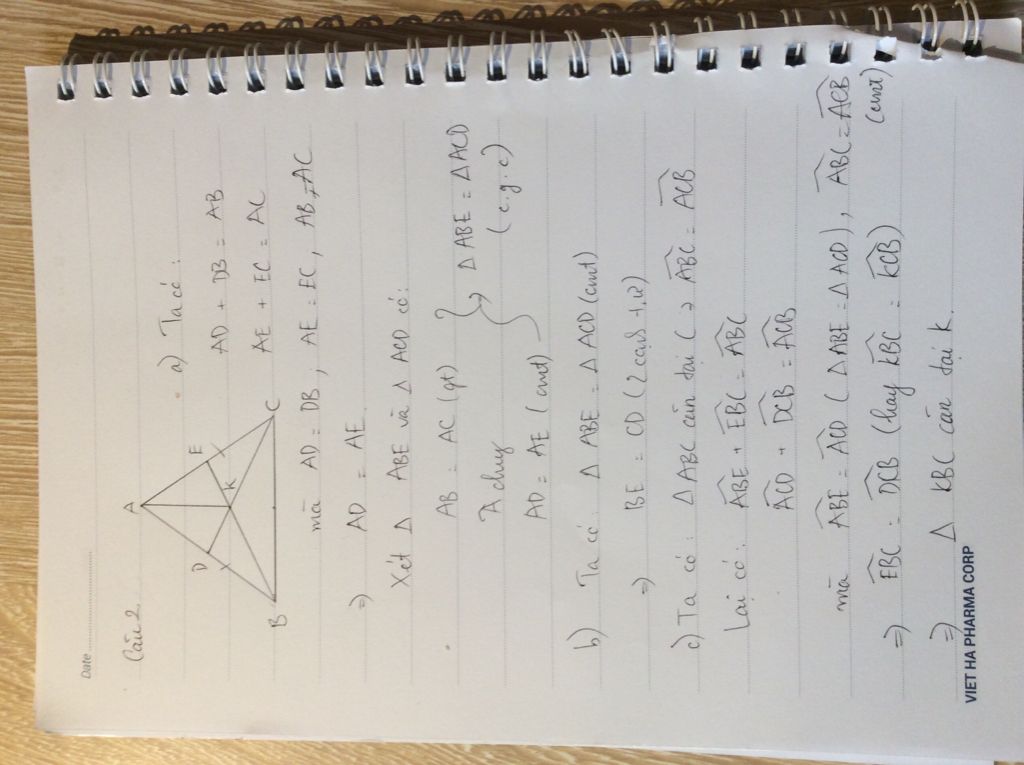 Date
Câu 2
A
D
E
K
B
C
a) Ta có :
AD + DB = AB
AE + EC = AC
mà AD = DB , AE = EC , AB = AC
=) AD = AE
Xét Δ ABE và Δ ACD có:
AB = AC (gt)
Â chug
AD = AE (cmt)
→ Δ ABE = Δ ACD
( c.g.c)
b) Ta có : Δ ABE = Δ ACD (cmt)
=) BE = CD (2 cạnh t.ứ)
c) Ta có : Δ ABC cân tại C → ABC = ACB
Lại có : ABE + EBC = ABC
ACD + DCB = ACB
mà ABE = ACD ( Δ ABE = Δ ACD) , ABC = ACB
(cmt)
=) EBC = DCB (hay KBC = KCB)
=) Δ KBC cân tại K.
VIET HA PHARMA CORP